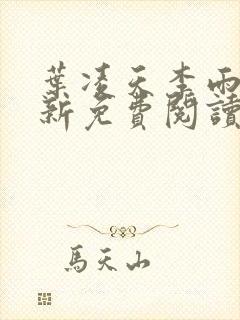 葉凌天李雨
新免費閱讀
馬天山